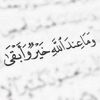 وَمَا عِندَ اللَّهِ خَيْرٌ وَأَبْقَىٰ